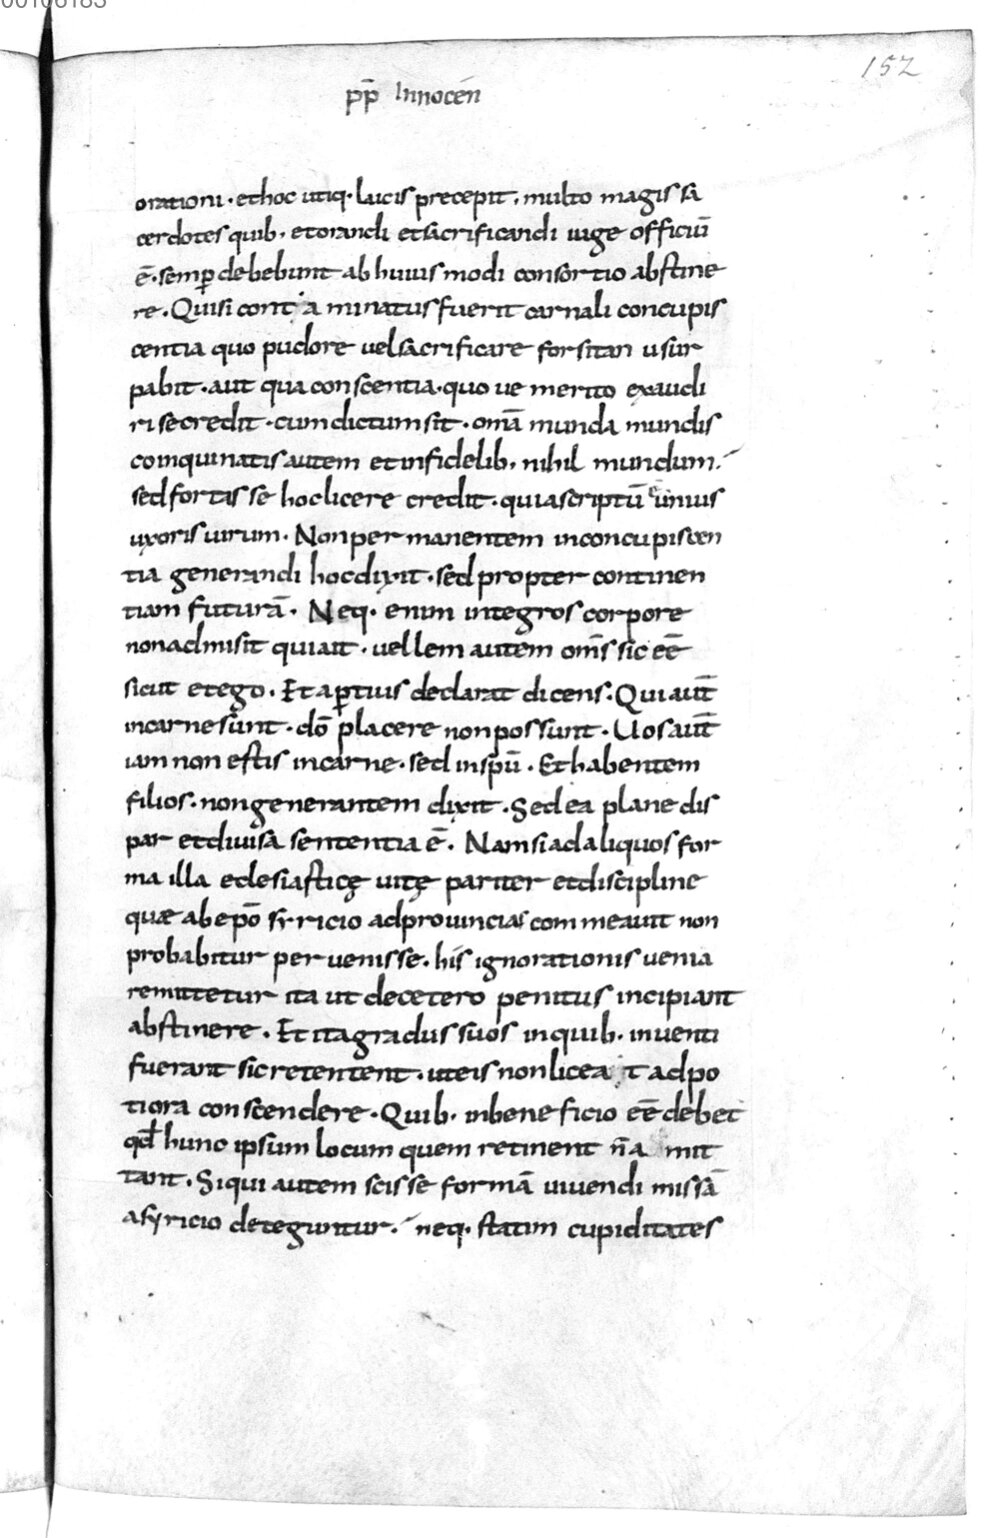 00106183
152
pp̄ Innocēn
orationi · et hoc utiq· laicis precepit · multo magis sa
cerdotes quib· et orandi et sacrificandi iuge officiū
ē · semp̱ debebunt ab huiusmodi consortio abstine
re · Qui si contaminatus fuerit carnali concupis
centia quo pudore vel sacrificare forsitan usur
pabit · aut qua conscentia · quo ve merito exaudi
ri se credit · cum dictum sit · omā munda mundis
coinquinatis autem et infidelib· nihil mundum ·
sed fortas se hoc licere credit · quia scriptū ē unius
uxoris uirum · Non permanentem in concupiscen
tia generandi hoc dixit · sed propter continen
tiam futurā · Neq· enim integros corpore
non admisit qui ait · vellem autem om̄s sic eē̄
sicut et ego · Et ap̱tius declarat dicens · Qui aut̄
in carne sunt · dō placere non possunt · Uos aut̄
iam non estis in carne · sed in spū · Et habentem
filios · non generantem dixit · Sed ea plane dis
par et diuisa sententia ē · Nam si ad aliquos for
ma illa eclesiasticę uitę pariter et discipline
quæ ab epō syricio ad prouincias commeauit non
probabitur peruenisse · his ignorationis uenia
remittetur ita ut de cetero penitus incipiant
abstinere · Et ita gradus suos in quib· inuenti
fuerant sic retentent · ut eis non liceat ad po
tiora conscendere · Quib· in beneficio eē̄ debet
qđ hunc ipsum locum quem retinent n̄ amit
tant · Si qui autem scisse formā uiuendi missā
a syricio deteguntur · neq· statim cupiditates